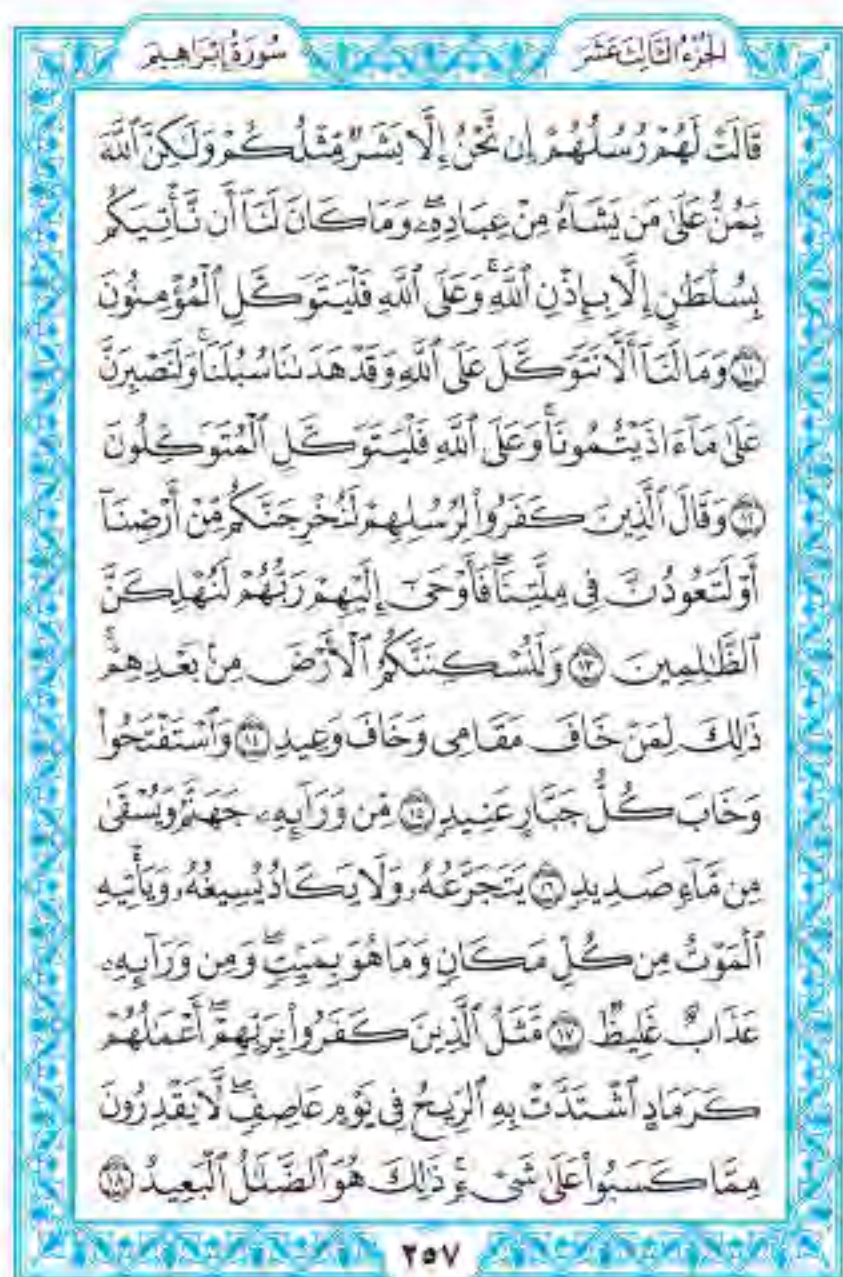 الجُزْءُ الثَّالِثَ عَشَرَ سُورَةُ إِبْرَاهِيمَ
قَالَتْ لَهُمْ رُسُلُهُمْ إِن نَّحْنُ إِلَّا بَشَرٌ مِّثْلُكُمْ وَلَٰكِنَّ ٱللَّهَ
يَمُنُّ عَلَىٰ مَن يَشَآءُ مِنْ عِبَادِهِۦۖ وَمَا كَانَ لَنَآ أَن نَّأْتِيَكُم
بِسُلْطَٰنٍ إِلَّا بِإِذْنِ ٱللَّهِۚ وَعَلَى ٱللَّهِ فَلْيَتَوَكَّلِ ٱلْمُؤْمِنُونَ
﴿١١﴾ وَمَا لَنَآ أَلَّا نَتَوَكَّلَ عَلَى ٱللَّهِ وَقَدْ هَدَىٰنَا سُبُلَنَاۚ وَلَنَصْبِرَنَّ
عَلَىٰ مَآ ءَاذَيْتُمُونَاۚ وَعَلَى ٱللَّهِ فَلْيَتَوَكَّلِ ٱلْمُتَوَكِّلُونَ
﴿١٢﴾ وَقَالَ ٱلَّذِينَ كَفَرُوا۟ لِرُسُلِهِمْ لَنُخْرِجَنَّكُم مِّنْ أَرْضِنَآ
أَوْ لَتَعُودُنَّ فِى مِلَّتِنَاۖ فَأَوْحَىٰٓ إِلَيْهِمْ رَبُّهُمْ لَنُهْلِكَنَّ
ٱلظَّٰلِمِينَ ﴿١٣﴾ وَلَنُسْكِنَنَّكُمُ ٱلْأَرْضَ مِنۢ بَعْدِهِمْۚ
ذَٰلِكَ لِمَنْ خَافَ مَقَامِى وَخَافَ وَعِيدِ ﴿١٤﴾ وَٱسْتَفْتَحُوا۟
وَخَابَ كُلُّ جَبَّارٍ عَنِيدٍ ﴿١٥﴾ مِّن وَرَآئِهِۦ جَهَنَّمُ وَيُسْقَىٰ
مِن مَّآءٍ صَدِيدٍ ﴿١٦﴾ يَتَجَرَّعُهُۥ وَلَا يَكَادُ يُسِيغُهُۥ وَيَأْتِيهِ
ٱلْمَوْتُ مِن كُلِّ مَكَانٍ وَمَا هُوَ بِمَيِّتٍۖ وَمِن وَرَآئِهِۦ
عَذَابٌ غَلِيظٌ ﴿١٧﴾ مَّثَلُ ٱلَّذِينَ كَفَرُوا۟ بِرَبِّهِمْۖ أَعْمَٰلُهُمْ
كَرَمَادٍ ٱشْتَدَّتْ بِهِ ٱلرِّيحُ فِى يَوْمٍ عَاصِفٍۖ لَّا يَقْدِرُونَ
مِمَّا كَسَبُوا۟ عَلَىٰ شَىْءٍۚ ذَٰلِكَ هُوَ ٱلضَّلَٰلُ ٱلْبَعِيدُ ﴿١٨﴾
٢٥٧